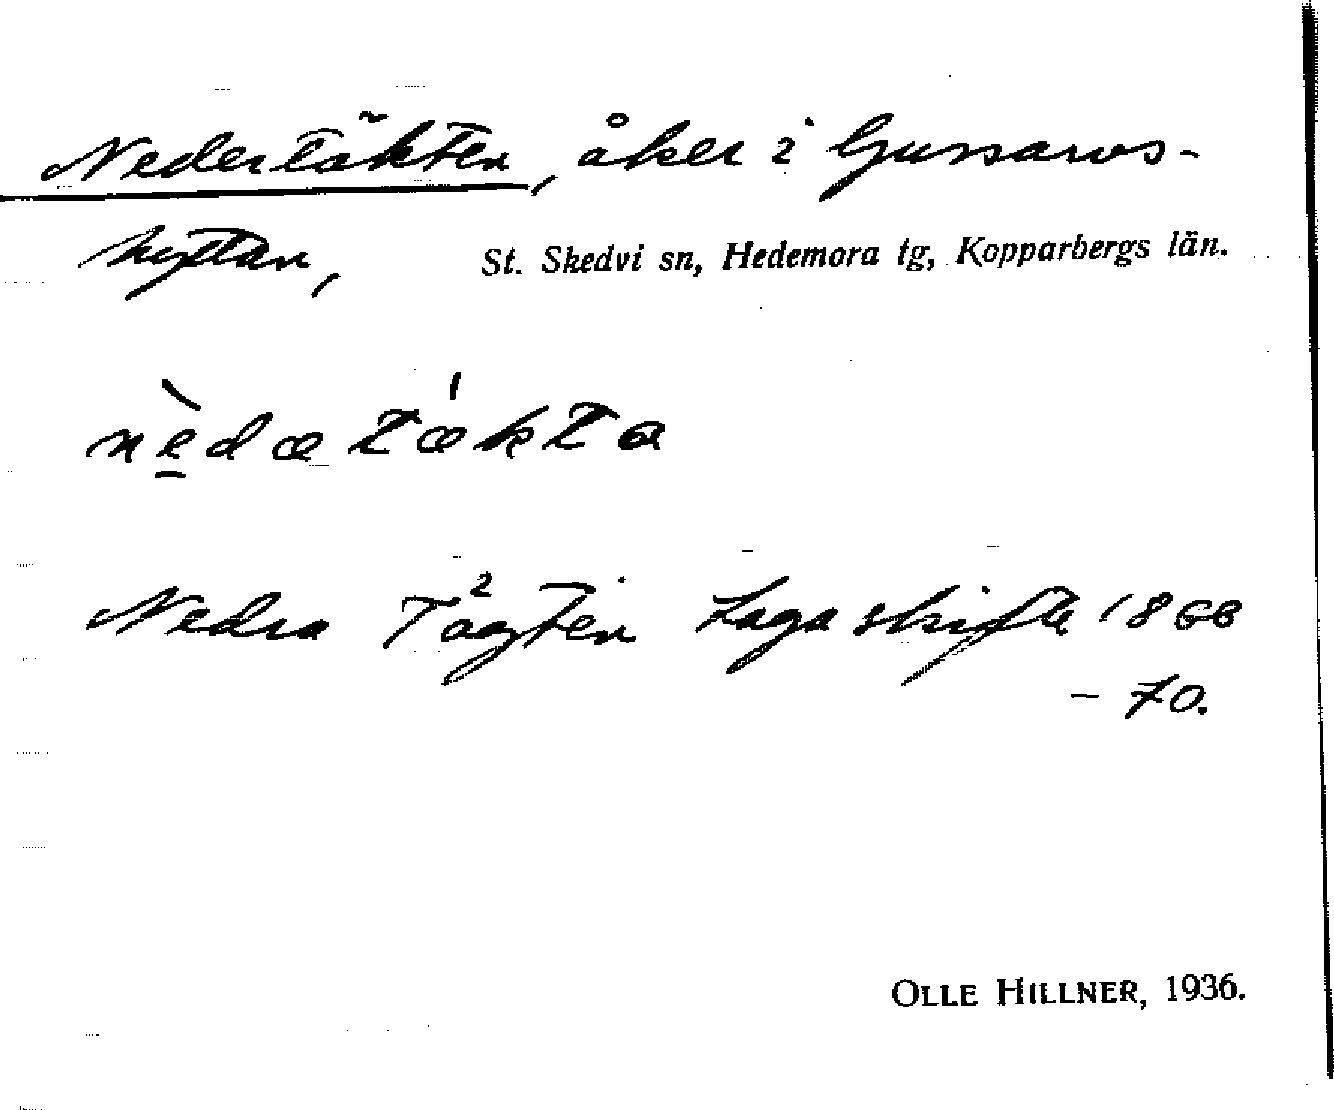 Nedertäkten, åker i Gussarvs-
hyttan, St. Skedvi sn, Hedemora tg, Kopparbergs län.
nè̠dætækta
Nedra Tägten Laga skifte 1868
- 70.
OLLE HILLNER, 1936.